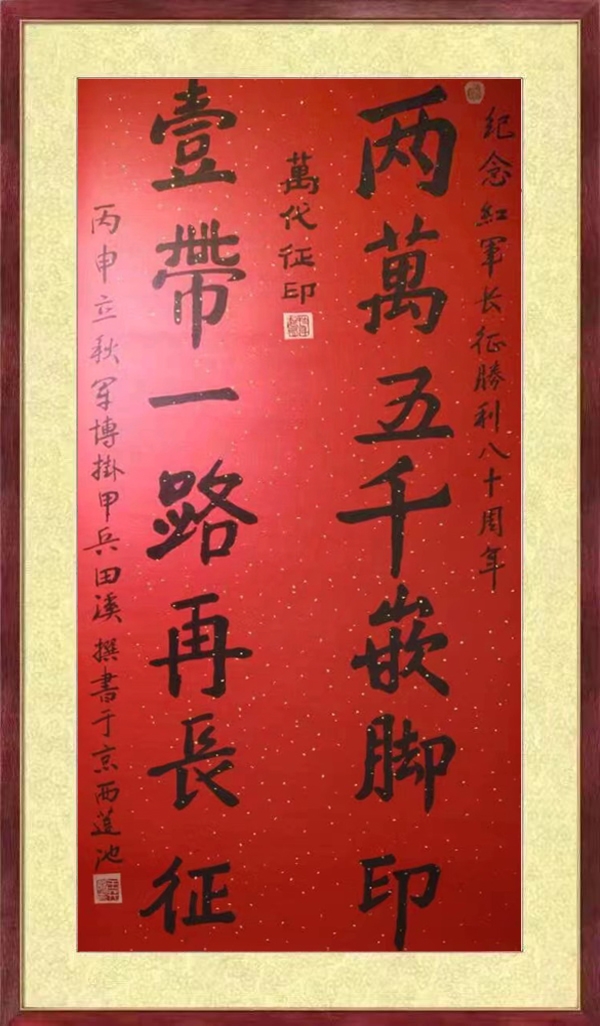 纪念红軍长征勝利八十周年
两萬五千嵌脚印
萬代征印
壹帶一路再長征
丙申立秋军博掛甲兵田溪撰書于京西莲池